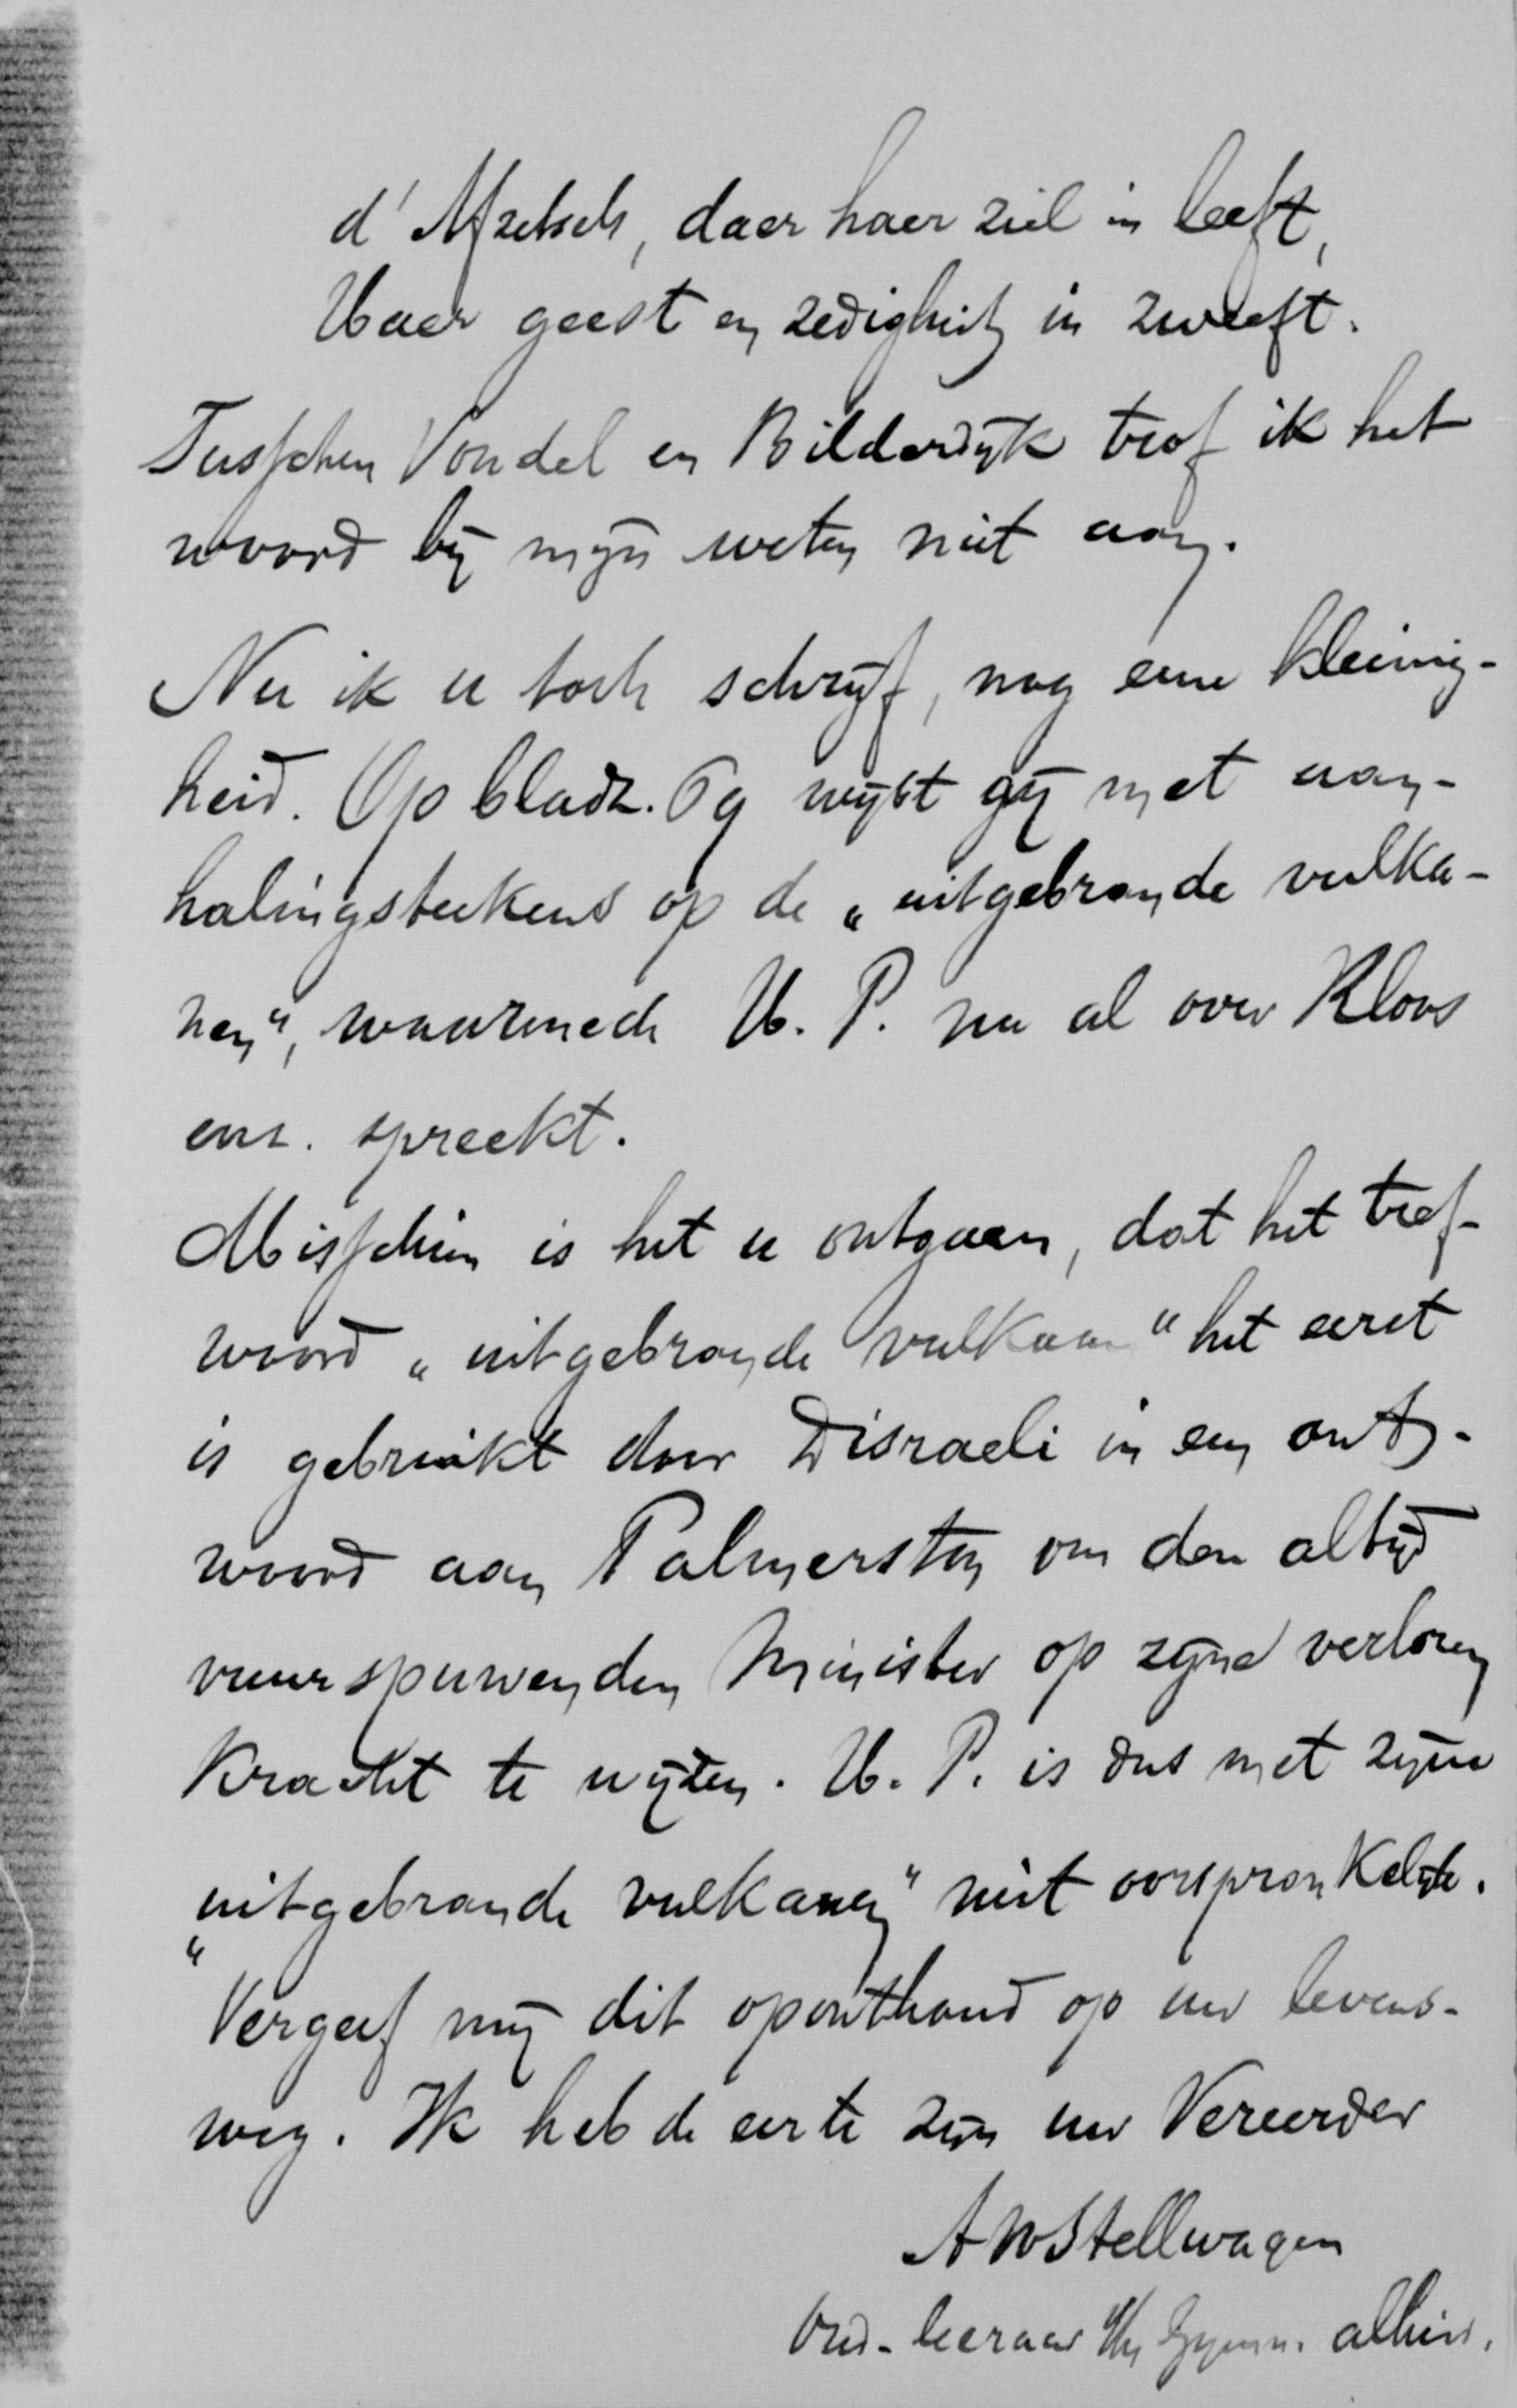 d' Afzetsels, daer haer ziel in leeft,
Waer geest en zedigheit in zweeft.
Tusschen Vondel en Bilderdijk trof ik het
woord bij mijn weten niet aan.
Nu ik u toch schrijf, nog eene kleinig-
heid. Op bladz. 69 wijst gij met aan-
halingsteekens op de „uitgebrande vulka-
nen", waarmede V. P. nu al over Kloos
enz. spreekt.
Misschien is het u ontgaan, dat het tref-
woord „uitgebrande vulkaan" het eerst
is gebruikt door Disraeli in een ant-
woord aan Palmerston om den altijd
vuurspuwenden Minister op zijne verloren
Kracht te wijzen. V. P. is dus met zijne
„uitgebrande vulkanen" niet oorspronkelijk.
Vergeef mij dit oponthoud op uw levens-
weg. Ik heb de eer te zijn uw Vereerder
AWStellwagen
Oud-leeraar Gymn. alhier.